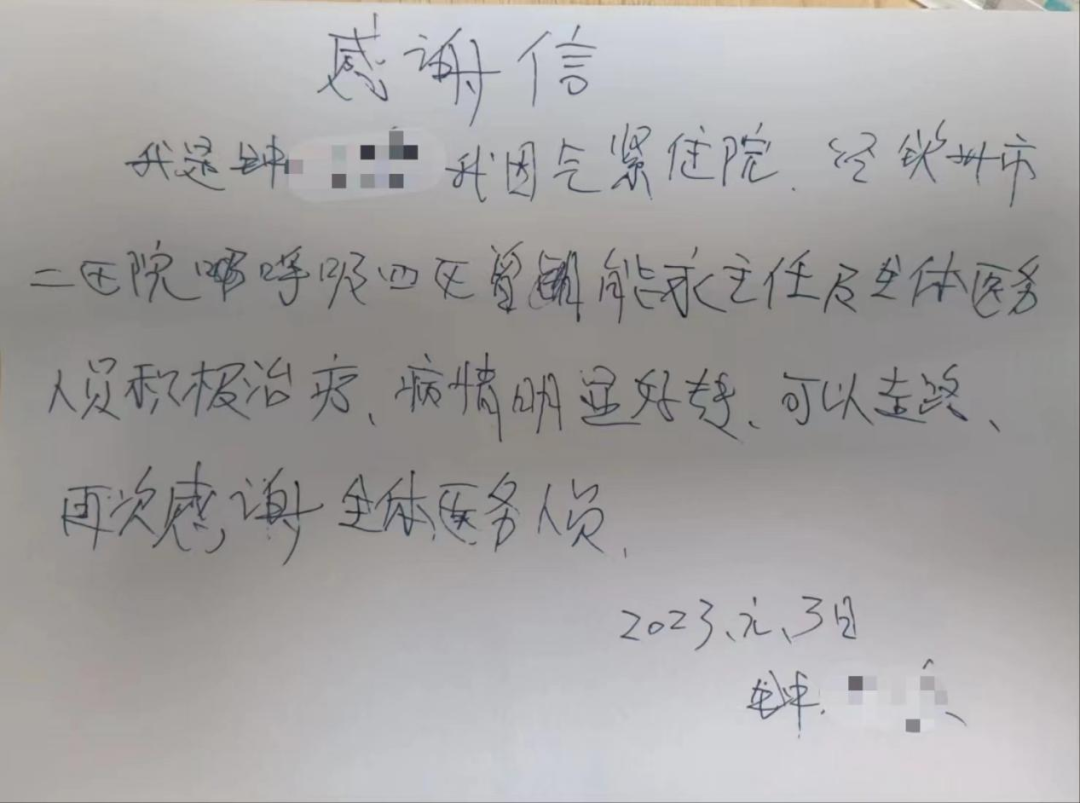 感谢信
我是钟 我因气紧住院、经钦州市
二医院呼吸四区曾 能永主任及全体医务
人员积极治疗、病情明显好转、可以走路、
再次感谢全体医务人员、
2023、元、3日
钟